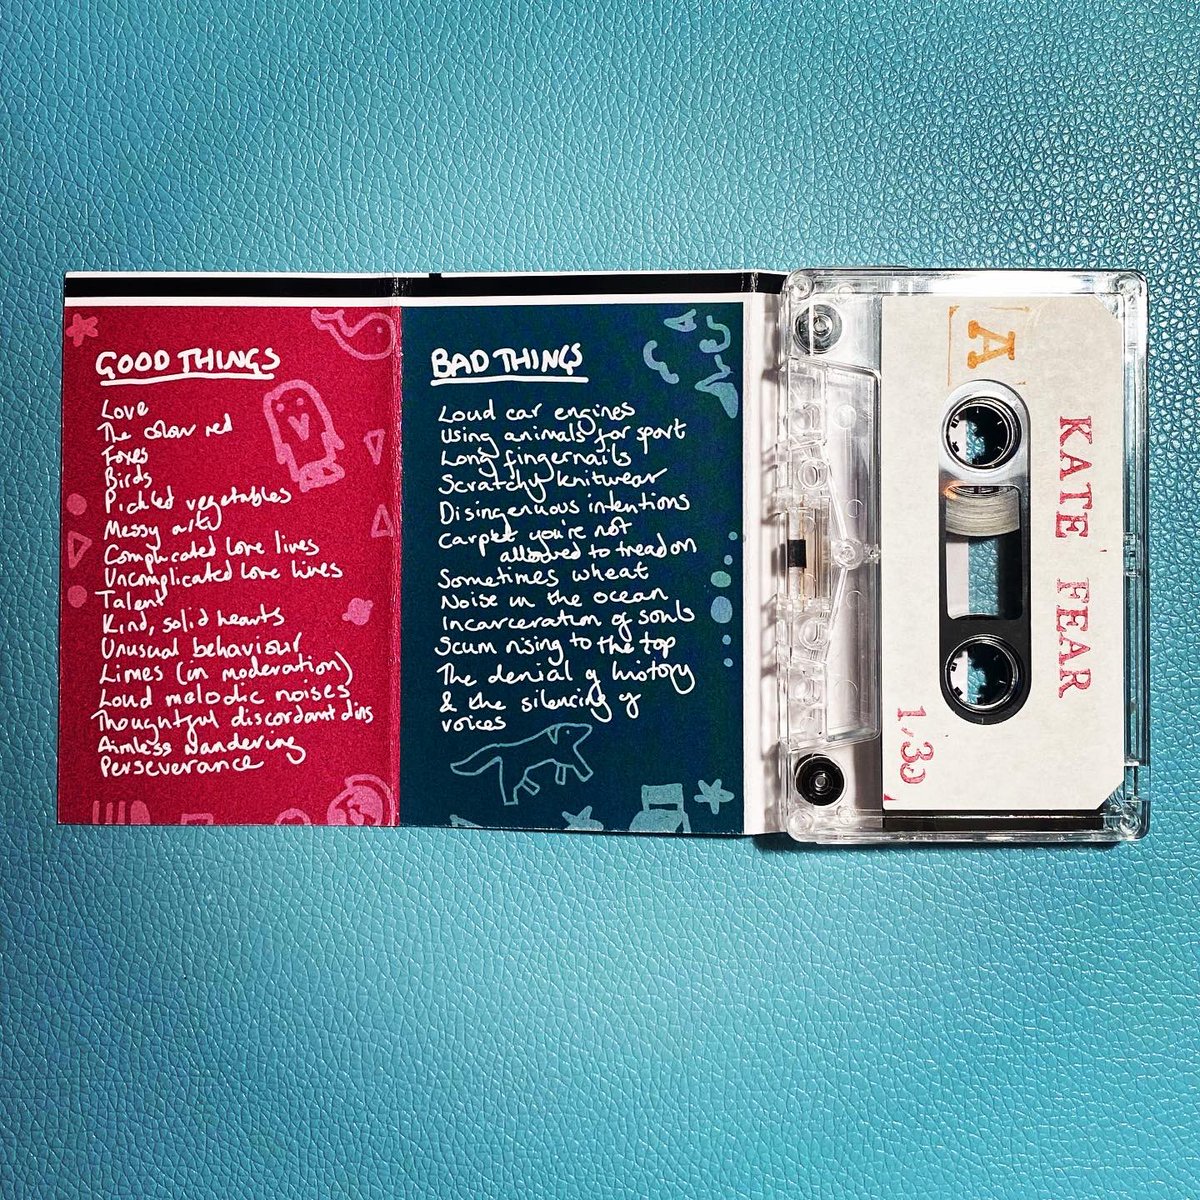 GOOD THINGS
Love
The colour red
Foxes
Birds
Pickled vegetables
Messy arty
Complicated love lives
Uncomplicated love lives
Talent
Kind, solid hearts
Unusual behaviour
Limes (in moderation)
Loud melodic noises
Thoughtful discordant dins
Aimless wandering
Perseverance
BAD THINGS
Loud car engines
Using animals for sport
Long fingernails
Scratchy knitwear
Disingenuous intentions
Carpet you're not
allowed to tread on
Sometimes wheat
Noise in the ocean
Incarceration of souls
Scum rising to the top
The denial of history
& the silencing of
voices
A
KATE FEAR